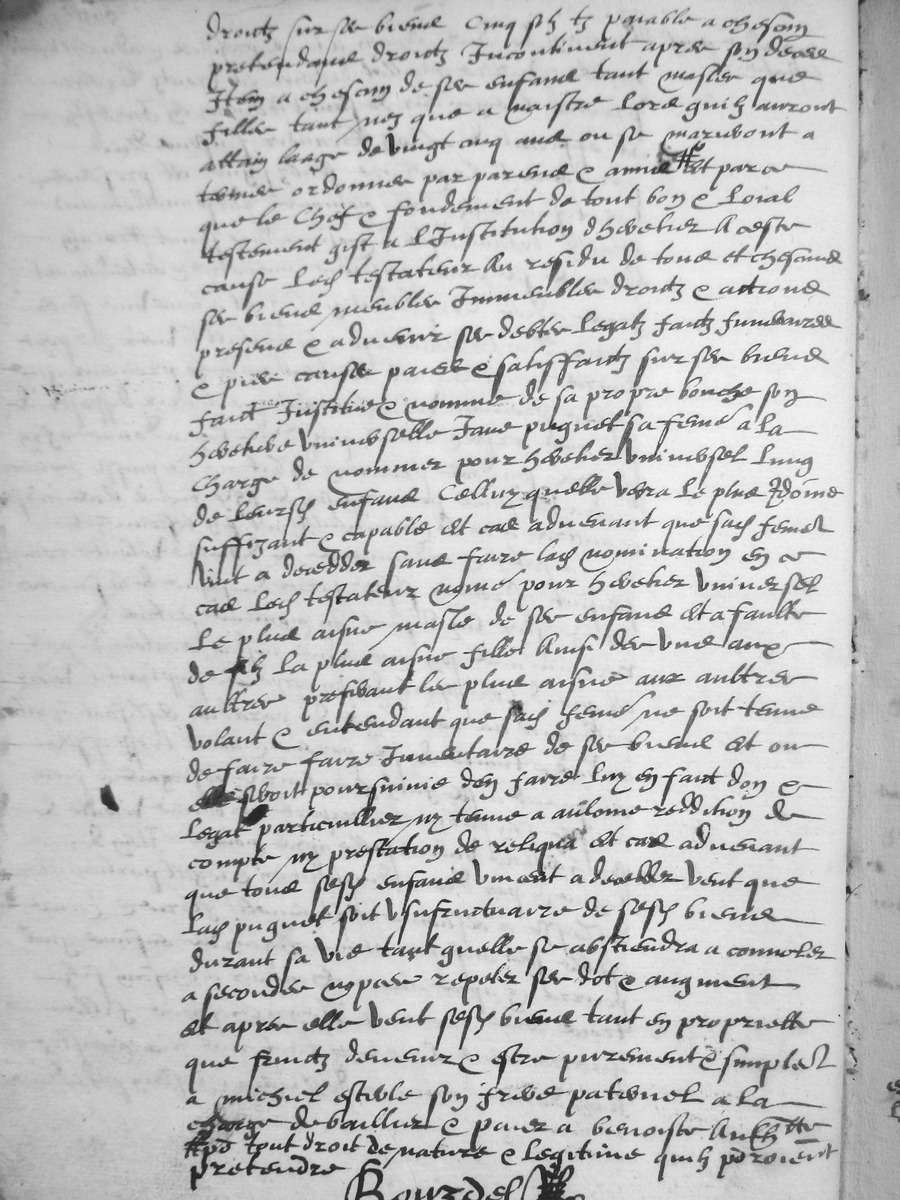 droictz sur ses biens Cinq solz tz paiable a chescun
pretendans droictz Incontinent apres son deces
Item a chescun de ses enfans tant masles que
filles tant nez que a naistre lors quilz auront
attain laage de vingt cinq ans ou se mariront a
termes ordonnes par parens & amis Et parce
que le Chef & fondement de tout bon & loial
testement gist a l Institution dheretier A ceste
cause Led testateur Au residu de tous et chescuns
ses biens meubles Immeubles droictz & actions
presens & advenir ses debtes legatz faictz funeraires
& pies causes paies & satisffaictz sur ses biens
faict Institue & nomme de sa propre bouche son
heretiere universelle Jane puguet sa feme a la
charge de nommer pour heretier universel lung
de leursd enfans Celluy quelle verra le plus ydoine
suffizant & capable et cas advenant que sad feme
vint a decedder sans faire lad nomination en ce
cas Led testateur nome pour heretier universel
Le plus aisne masle de ses enfans et a faulte
de filz la plus aisne fille Ainsi des uns aux
aultres preferant les plus aisne aux aultres
volant & entendant que sad feme ne soit tenue
de faire faire Inventaire de ses biens et ou
elle seroit poursuivie den faire luy en faict don &
legat particullier ny tenue a aulcune reddition de
compte ny prestation de reliqua et cas advenant
que tous sesd enfans vincent a decedder veut que
lad puguet soit usufructuaire de sesd biens
durant sa vie tant quelle se abstiendra a convoler
a secondes nopces repeter ses dot & augment
et apres elle veut sesd biens tant en propriette
que fruictz devenir & estre purement & simplet
a michiel esteole son frere paternel a la
charge de baillier & paier a benoiste
tout droit de nature & legitime quilz poroient
pretendre
Bourdel